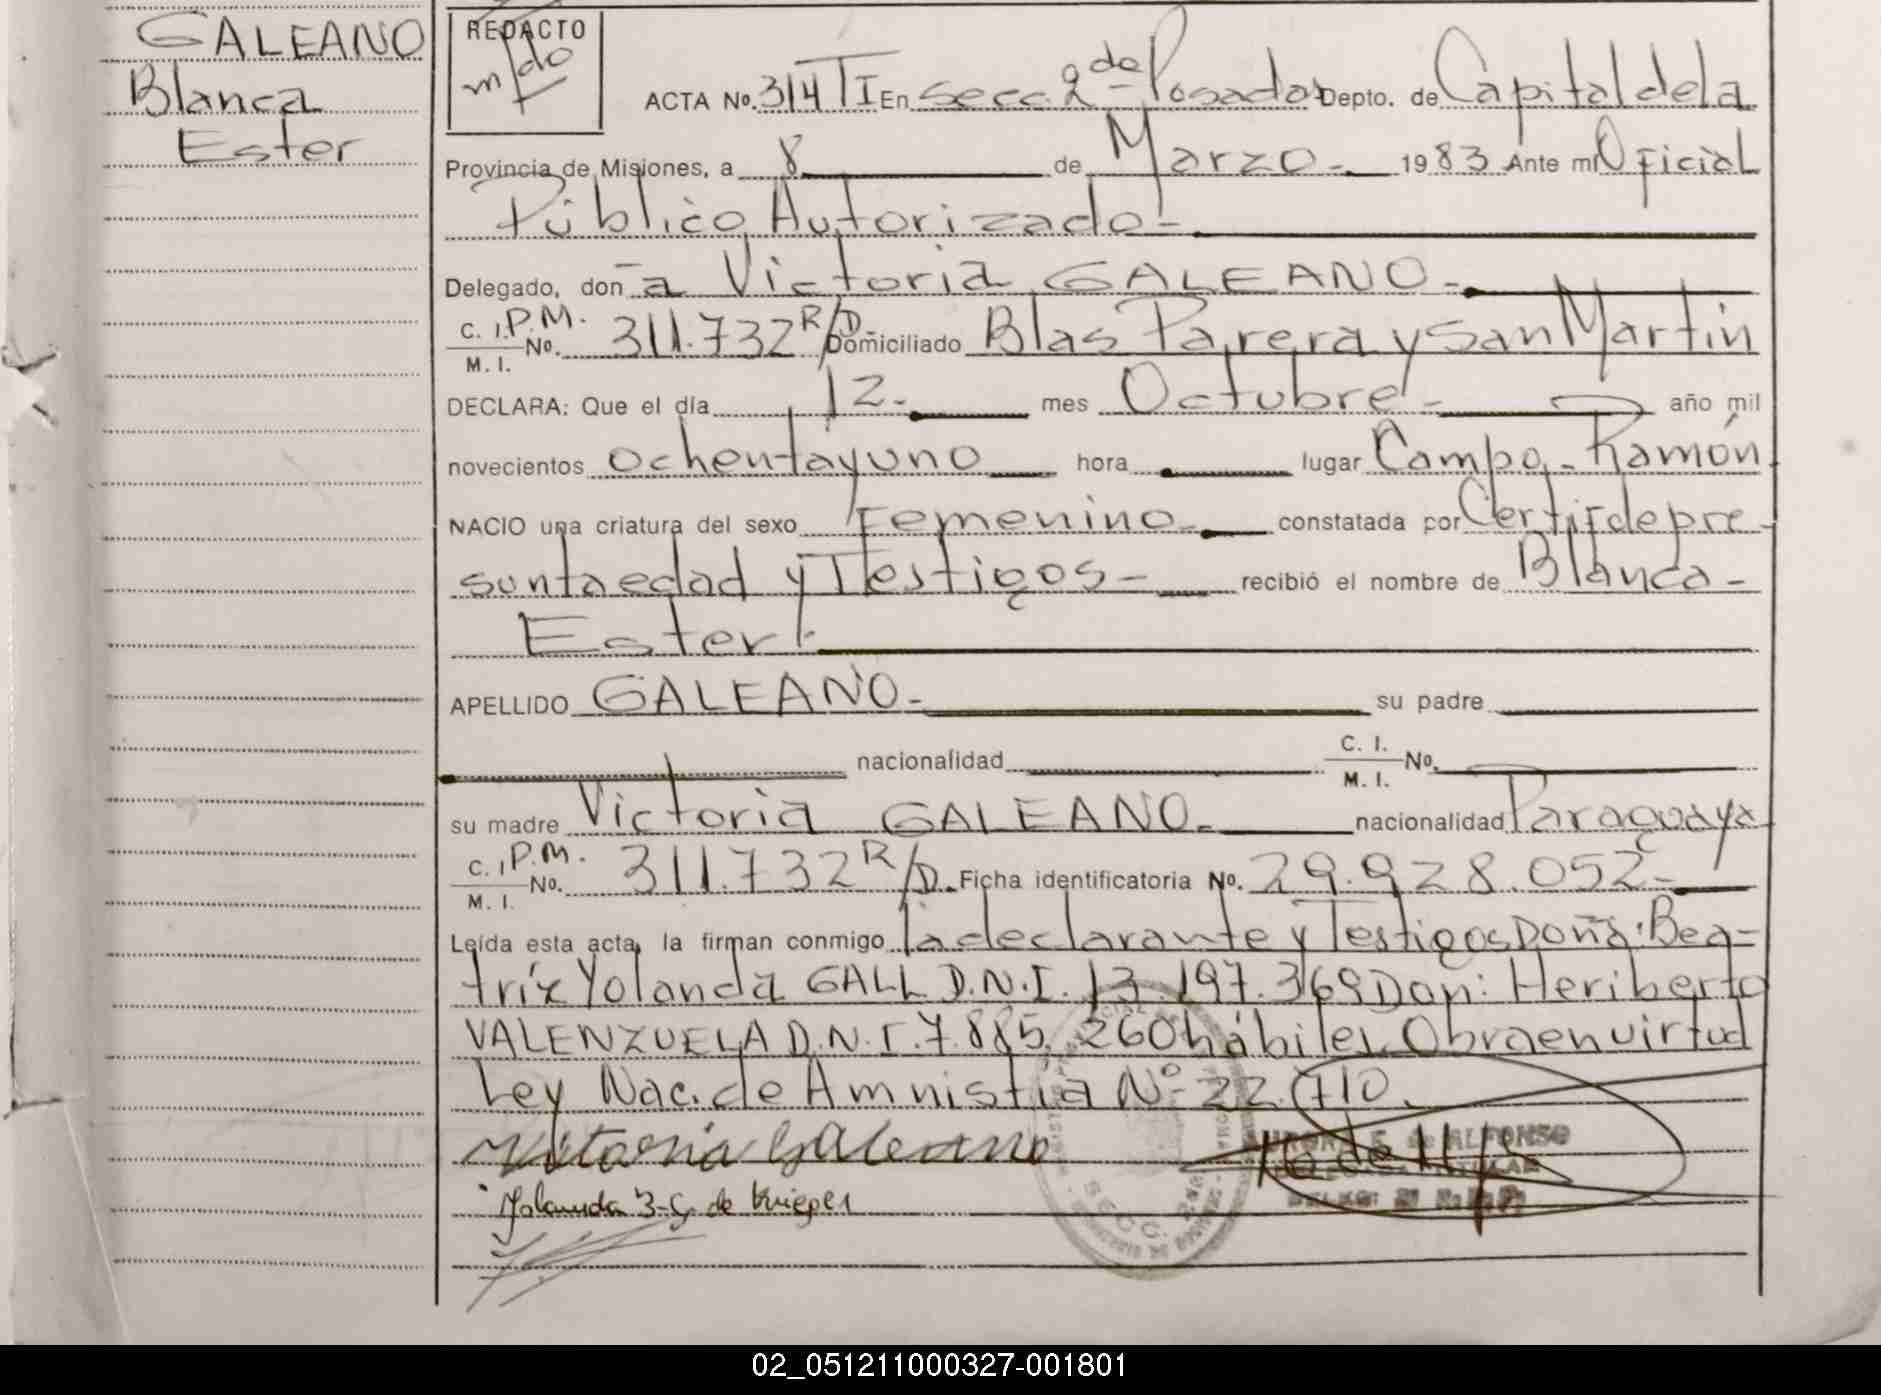 GALEANO
Blanca
Ester
REDACTO
ACTA No. 314 TI En Secc. 2da Posadas Depto. de Capital de la
Provincia de Misiones, a 8 de Marzo - 1983 Ante mi Oficial
Público Autorizado -
Delegado, don a Victoria GALEANO -
C. I. P.M. No. 311.732 R/D. Domiciliado Blas Parera y San Martín
M. I.
DECLARA: Que el día 12 - mes Octubre - año mil
novecientos ochentayuno hora lugar Campo - Ramón
NACIO una criatura del sexo Femenino - constatada por Certif de pre -
sunta edad y Testigos - recibió el nombre de Blanca -
Ester -
APELLIDO GALEANO - su padre
nacionalidad C. I. No.
M. I.
su madre Victoria GALEANO - nacionalidad Paraguaya
C. I. P.M. No. 311.732 R/D. Ficha identificatoria No. 29.928.052 -
M. I.
Leída esta acta, la firman conmigo la declarante y Testigos Doña: Bea-
tríz Yolanda GALL D.N.I. 13.197.369 Don: Heriberto
VALENZUELA D.N.I. 7.885.260 hábiles. Obra en virtud
Ley Nac. de Amnistia Nº 22.710.
Victoria Galeano
de ALFONSO
Yolanda B. G. de Krieger
SECC.
02_051211000327-001801